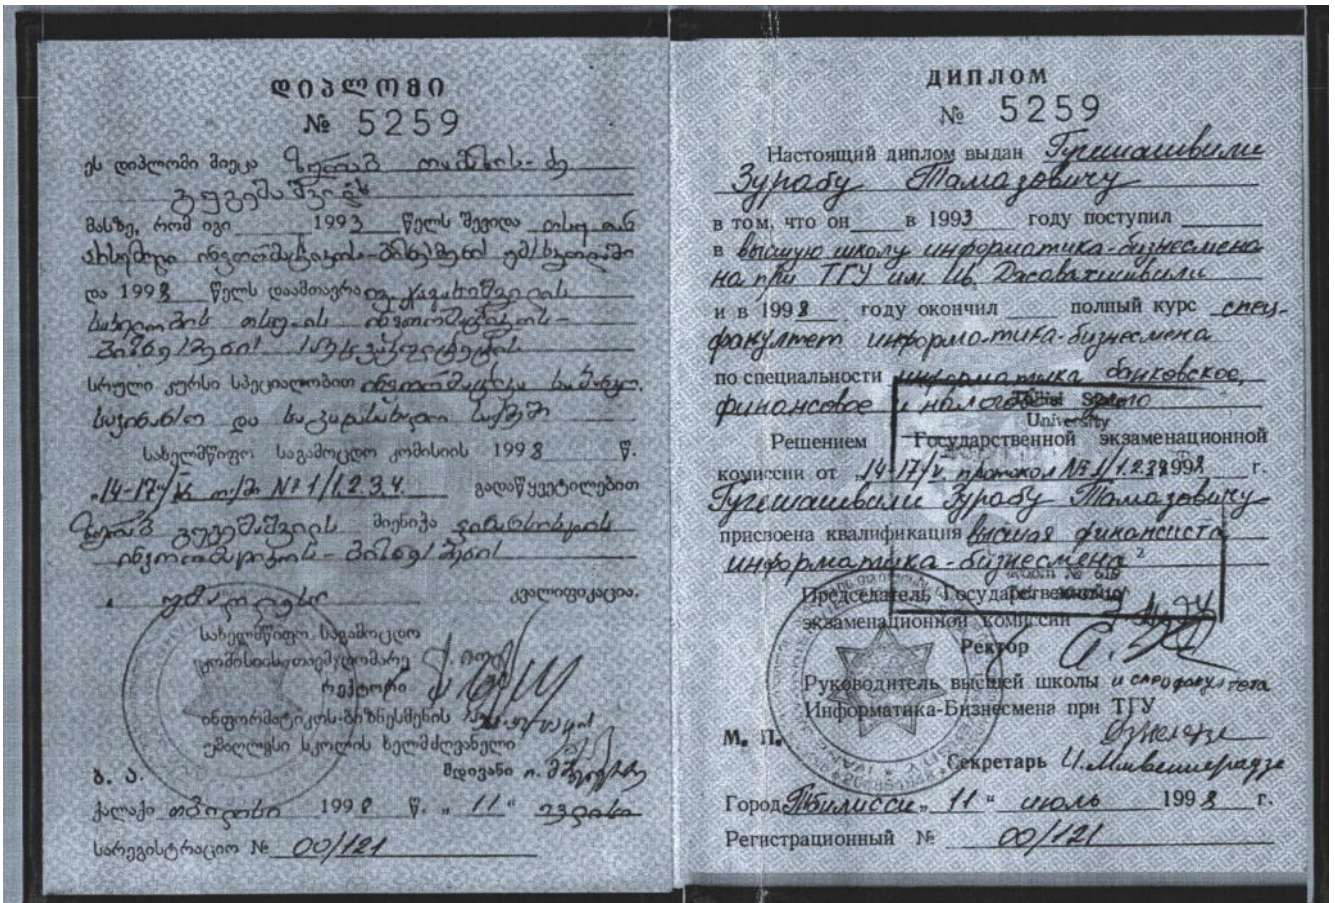 დიპლომი
№ 5259
ეს დიპლომი მიეცა ზურაბ თამაზის-ძე
გუგეშაშვილს
მასზე, რომ იგი 1993 წელს შევიდა
და 1998 წელს დაამთავრა ივ. ჯავახიშვილის
სახელობის თსუ-ის ინფორმატიკოს-
ბიზნესმენის სპეცფაკულტეტის
სრული კურსი სპეციალობით ინფორმატიკა საბანკო,
საფინანსო და საგადასახადო საქმეში
სახელმწიფო საგამოცდო კომისიის 1998 წ.
„14-17“/V ო/მ № 1/1.2.3.4. გადაწყვეტილებით
ზურაბ გუგეშაშვილს მიენიჭა ფინანსისტის
ინფორმატიკოს-ბიზნესმენის
უმაღლესი კვალიფიკაცია.
სახელმწიფო საგამოცდო
კომისიის თავმჯდომარე
რექტორი
ინფორმატიკოს-ბიზნესმენის
უმაღლესი სკოლის ხელმძღვანელი
ბ. ა. მდივანი
ქალაქი თბილისი 1998 წ. „ 11 “ ივლისი
სარეგისტრაციო № 00/121
ДИПЛОМ
№ 5259
Настоящий диплом выдан Гугешашвили
Зурабу Тамазовичу
в том, что он в 1993 году поступил
в высшую школу информатика-бизнесмена
на при ТГУ им. Ив. Джавахишвили
и в 1998 году окончил полный курс спец-
факультет информатика-бизнесмена
по специальности информатика банковское,
финансовое и
State
University
Решением Государственной экзаменационной
комиссии от „14-17/V. протокол № 1/1.2.3 1998 г.
Гугешашвили Зурабу Тамазовичу
присвоена квалификация высшая финансиста
информатика-бизнесмена ²
Председатель Государственной
экзаменационной комиссии
Ректор
Руководитель высшей школы и спецфакультета
Информатика-Бизнесмена при ТГУ
М. П.
Секретарь И. Мшвениерадзе
Город Тбилисси „ 11 “ июль 1998 г.
Регистрационный № 00/121